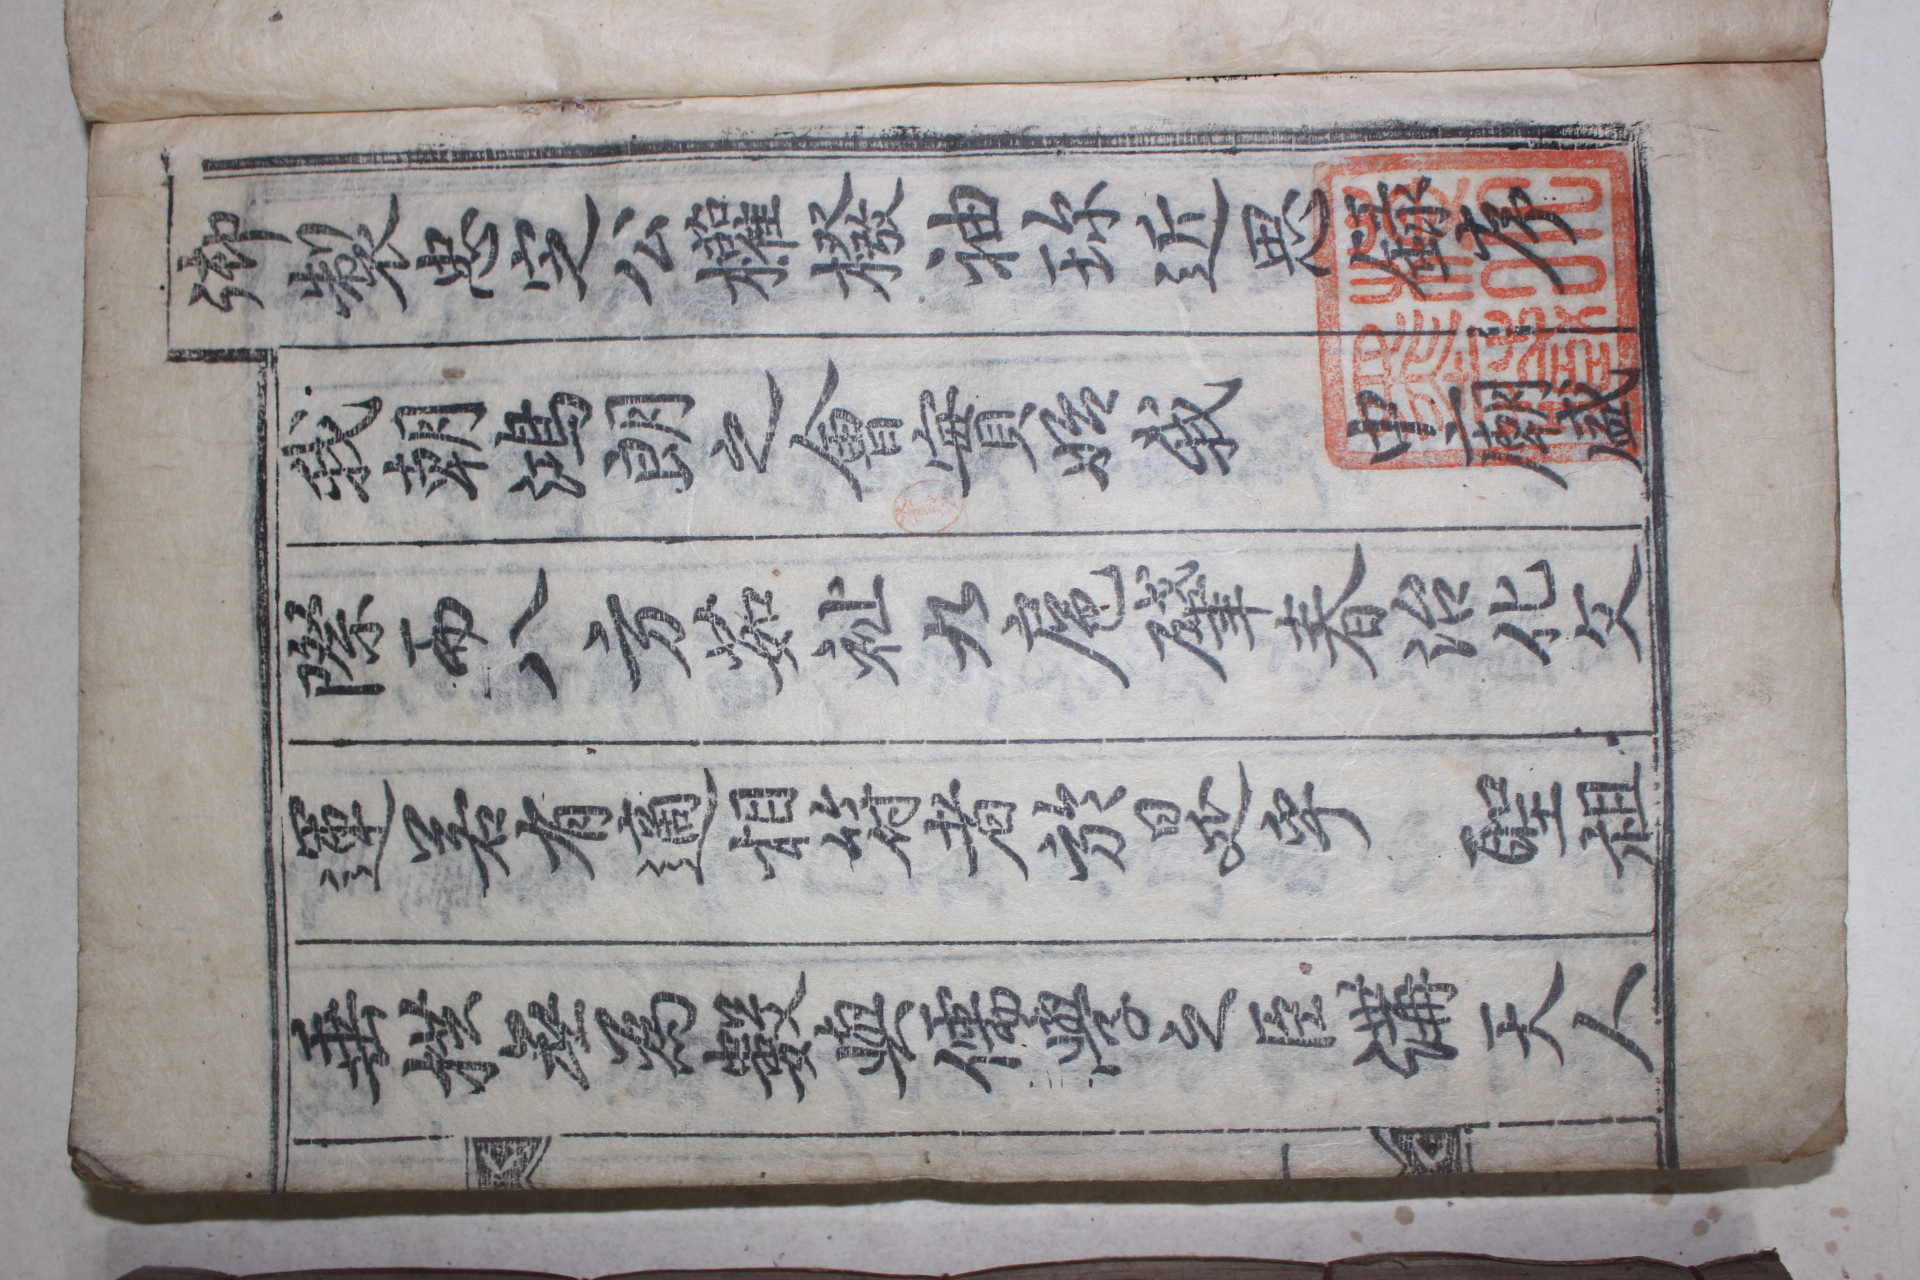 御製忠定公權橃袖珍近思錄序
我朝鴻朗之會實始我 中廟盛
際而八方茹祉九扈肇春治化文
運若有適相符者於是乎 聖祖
垂拱無爲數與儒學之臣講天人
一